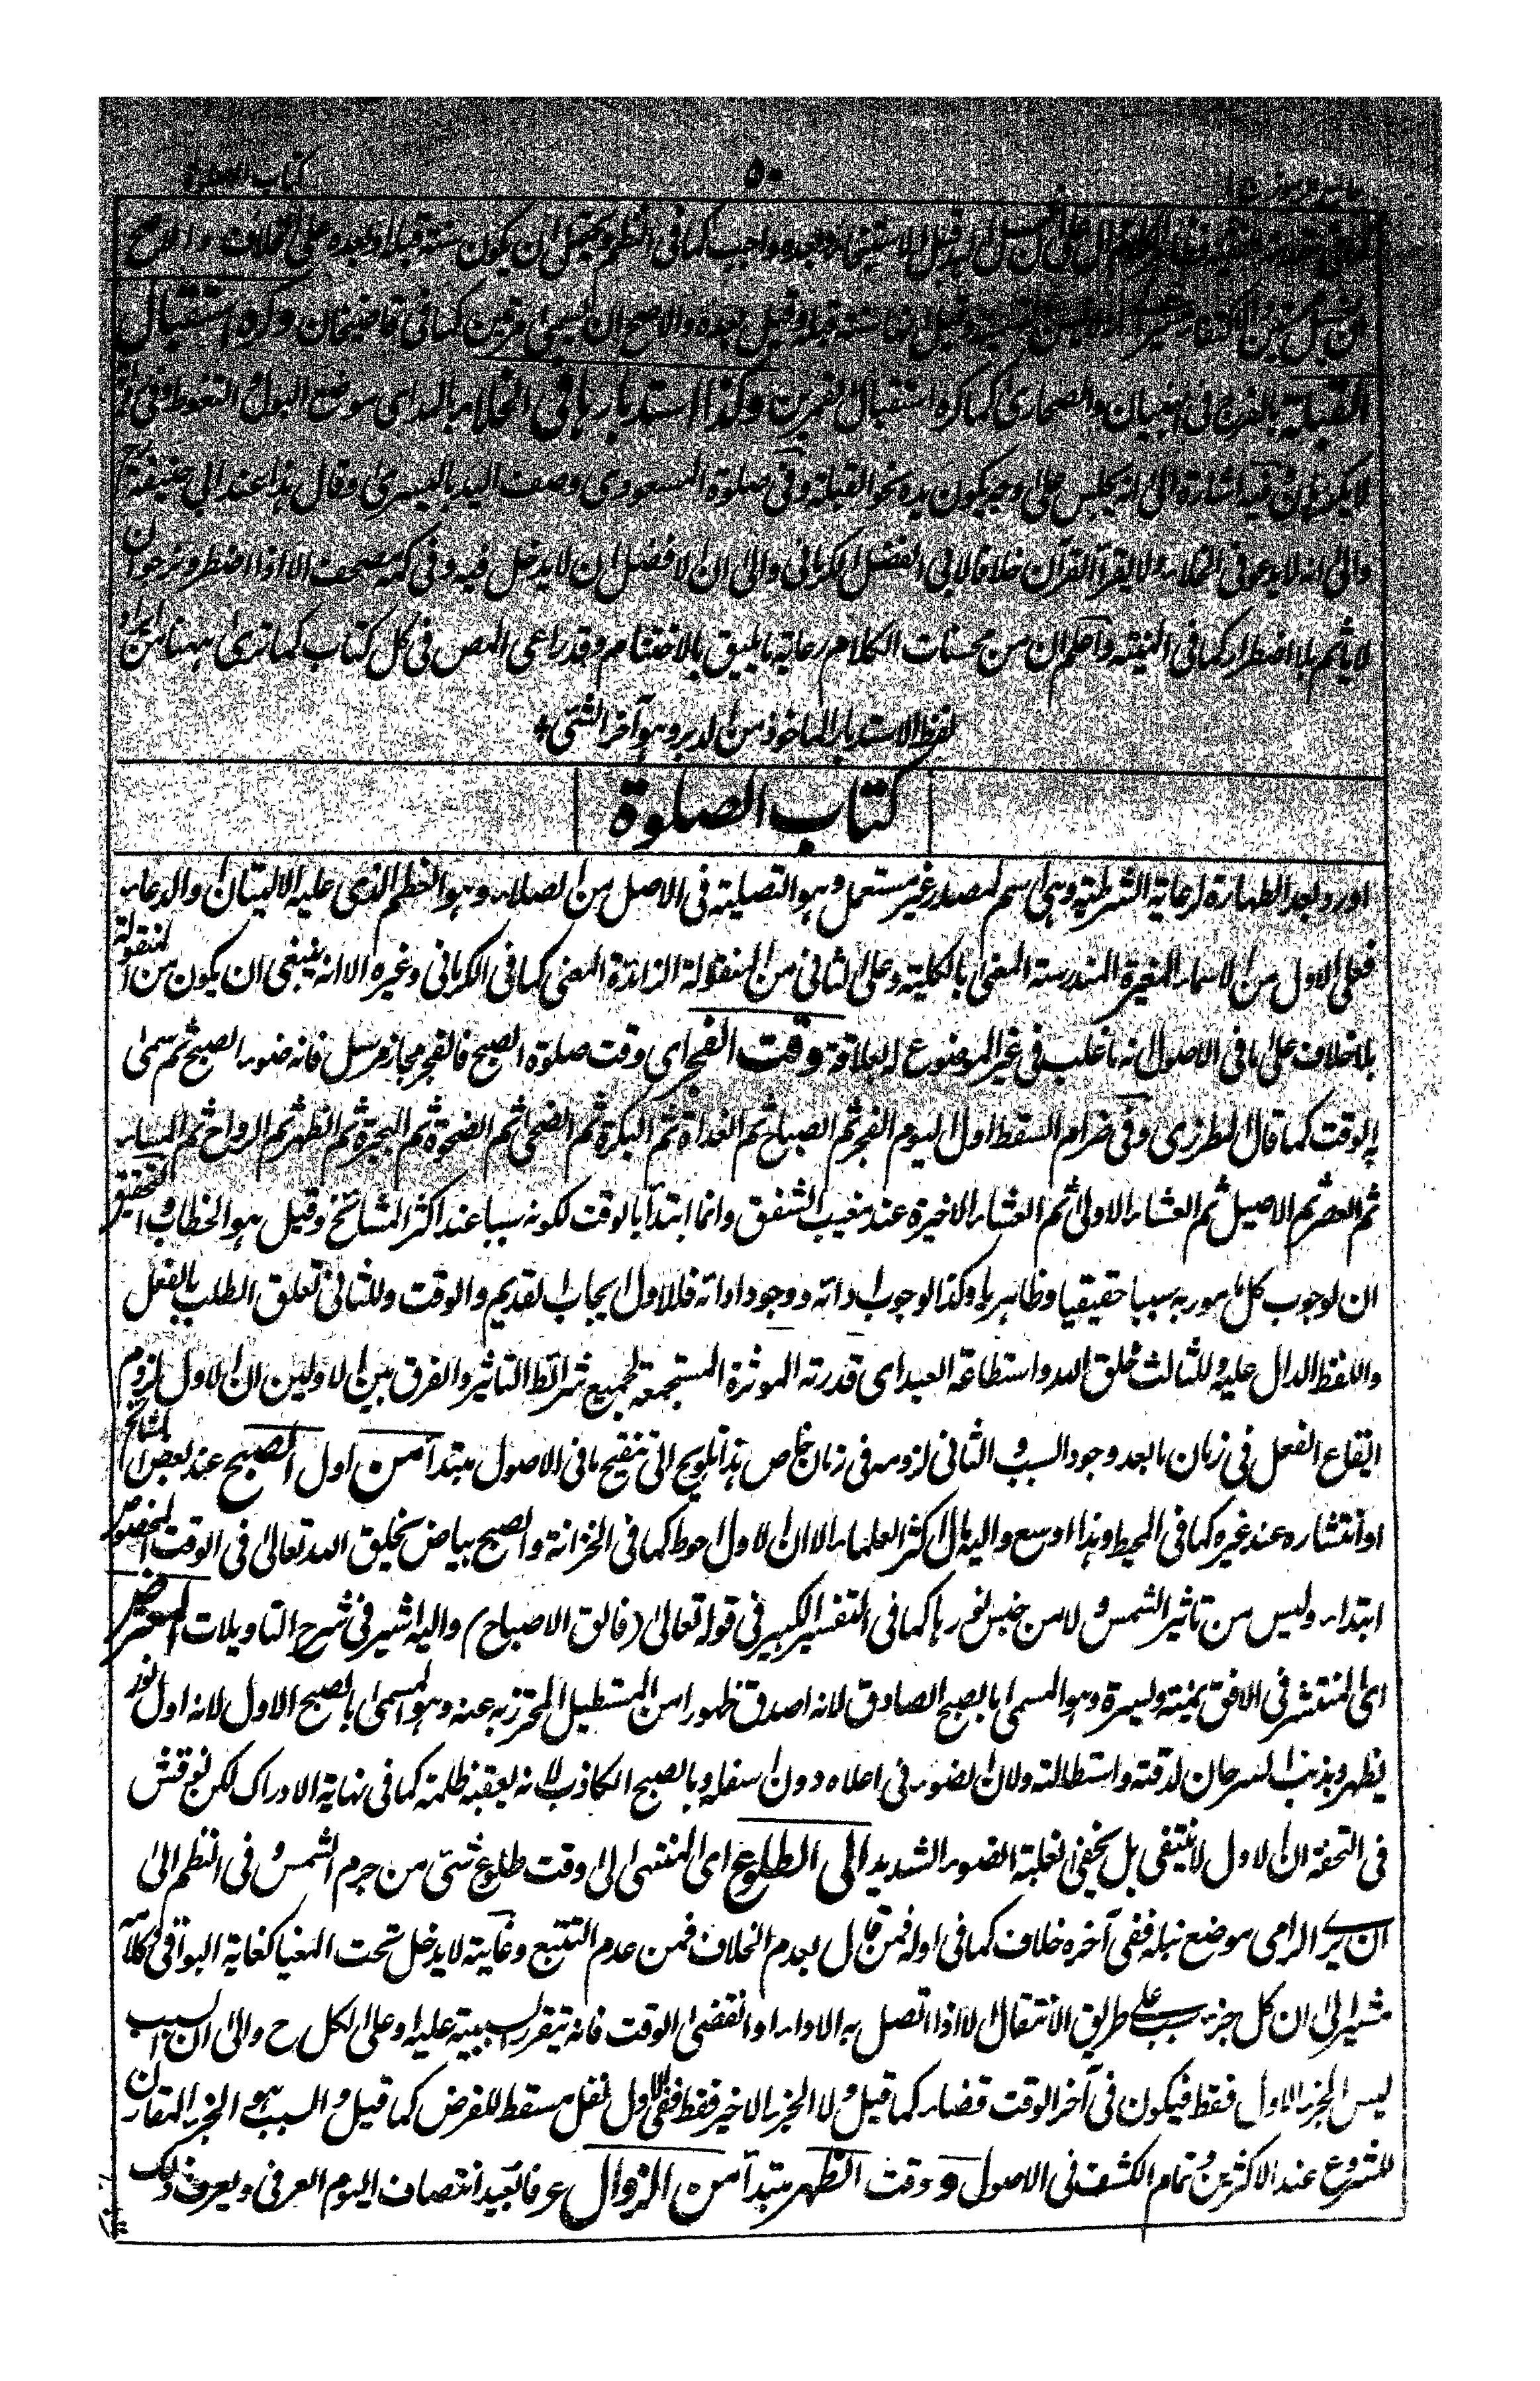 كتاب الصلوة
٥٠
قبل الاستنجاء وبعده واجب كما فى النظم ويحتمل ان يكون سنة قبله وبعده على الخلاف والاصح
قبله وقيل بعده والاصح ان يسمى مرتين كما فى قاضيخان وكره استقبال
القبلة بالفرج فى البنيان والصحارى كما كره استقبال القمرين وكذا استدبارها فى الخلاء بالمد اى موضع البول والتغوط وفى
اشارة الى انه يجلس على وجه يكون يده نحو القبلة وفى صلوة المسعودى وصف اليد باليسرى وقال هذا عند ابى حنيفة رح
والى انه لا يدعو فى الخلاء ولا يقرأ القرآن خلافا لابى الفضل الكرمانى والى ان الافضل ان لا يدخل فيه وفى كمه مصحف الا اذا اضطر ونرجو ان
لا يأثم بلا اضطرار كما فى المنية واعلم ان من محسنات الكلام رعاية ما يليق بالاختتام وقد راعى المص فى كل كتاب كما ترى ههنا من ايراد
لفظ الاستدبار الماخوذ من الدبر وهو آخر الشئ
كتاب الصلوة
اورد بعد الطهارة لرعاية الشرطية وهى اسم لمصدر غير مستعمل وهو التصلية فى الاصل من الصلاء وهو العظم الذى عليه الاليتان والدعاء
فعلى الاول من الاسماء المغيرة المندرسة المعنى بالكلية وعلى الثانى من المنقولة الزائدة المعنى كما فى الكرمانى وغيره الا انه ينبغى ان يكون من المنقولة
بلا خلاف على ما فى الاصول انه ما غلب فى غير الموضوع له بعلاقة وقت الفجر اى وقت صلوة الصبح فالفجر مجاز مرسل فانه ضوء الصبح ثم سمى
به الوقت كما قال المطرزى وفى ضرام السقط اول اليوم الفجر ثم الصباح ثم الغداة ثم البكرة ثم الضحى ثم الضحوة ثم الهجرة ثم الظهر ثم الرواح ثم المساء
ثم العصر ثم الاصيل ثم العشاء الاولى ثم العشاء الاخيرة عند مغيب الشفق وانما ابتدأ بالوقت لكونه سببا عند اكثر المشائخ وقيل هو الخطاب والتحقيق
ان لوجوب كل مامور به سببا حقيقيا وظاهريا وكذا لوجوب ادائه ووجود ادائه فللاول ايجاب القديم والوقت وللثانى تعلق الطلب بالفعل
واللفظ الدال عليه وللثالث خلق الله واستطاعة العبد اى قدرته الموثرة المستجمعة لجميع شرائط التاثير والفرق بين الاولين ان الاول لزوم
ايقاع الفعل فى زمان ما بعد وجود السبب والثانى لزومه فى زمان خاص هذا تلويح الى تنقيح ما فى الاصول مبتدأ من اول الصبح عند بعض المشائخ
او انتشاره عند غيره كما فى المحيط وهذا اوسع واليه مال اكثر العلماء الا ان الاول احوط كما فى الخزانة والصبح بياض يخلق الله تعالى فى الوقت المخصوص
ابتداء وليس من تاثير الشمس ولا من جنس نورها كما فى التفسير الكبير فى قوله تعالى (فالق الاصباح) واليه اشير فى شرح التاويلات المعترض
اى المنتشر فى الافق يمنة ويسرة وهو المسمى بالصبح الصادق لانه اصدق ظهورا من المستطيل المحترز به عنه وهو المسمى بالصبح الاول لانه اول نور
يظهر وبذنب السرحان لدقته واستطالته ولان الضوء فى اعلاه دون اسفله وبالصبح الكاذب لانه يعقبه ظلمة كما فى نهاية الادراك لكن نوقش
فى التحفة ان الاول لا ينتفى بل يخفى لغلبة الضوء الشديد الى الطلوع اى المنتهى الى وقت طلوع شئ من جرم الشمس وفى النظم الى
ان يرى الرامى موضع نبله ففى آخره خلاف كما فى اوله فمن قال بعدم الخلاف فمن عدم التتبع وغايته لا يدخل تحت المغيا كغاية البواقى وكلامه
مشير الى ان كل جزء سبب على طريق الانتقال الا اذا اتصل به الاداء او انقضى الوقت فانه يتقرر السببية عليه او على الكل ح والى ان السبب
ليس الجزء الاول فقط فيكون فى آخر الوقت قضاء كما قيل ولا الجزء الاخير فقط ففى الاول نفل مسقط للفرض كما قيل والسبب هو الجزء المقارن
للشروع عند الاكثرين وتمام الكشف فى الاصول ووقت الظهر مبتدأ من الزوال عرفا بعيد انتصاف اليوم العرفى ويعرف ذلك